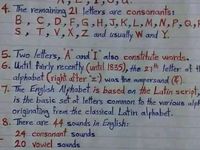 4. The remaining 21 letters are consonants:
B, C, D, F, G, H, J, K, L, M, N, P, Q, R
S, T, V, X, Z and usually W and Y.
5. Two letters, "A" and "I" also constitute words.
6. Until fairly recently (until 1835), the 27th letter of th
alphabet (right after "z") was the ampersand (&).
7. The English Alphabet is based on the Latin script,
is the basic set of letters common to the various alph
originating from the classical Latin alphabet.
8. There are 44 sounds in English:
- 24 consonant sounds
- 20 vowel sounds